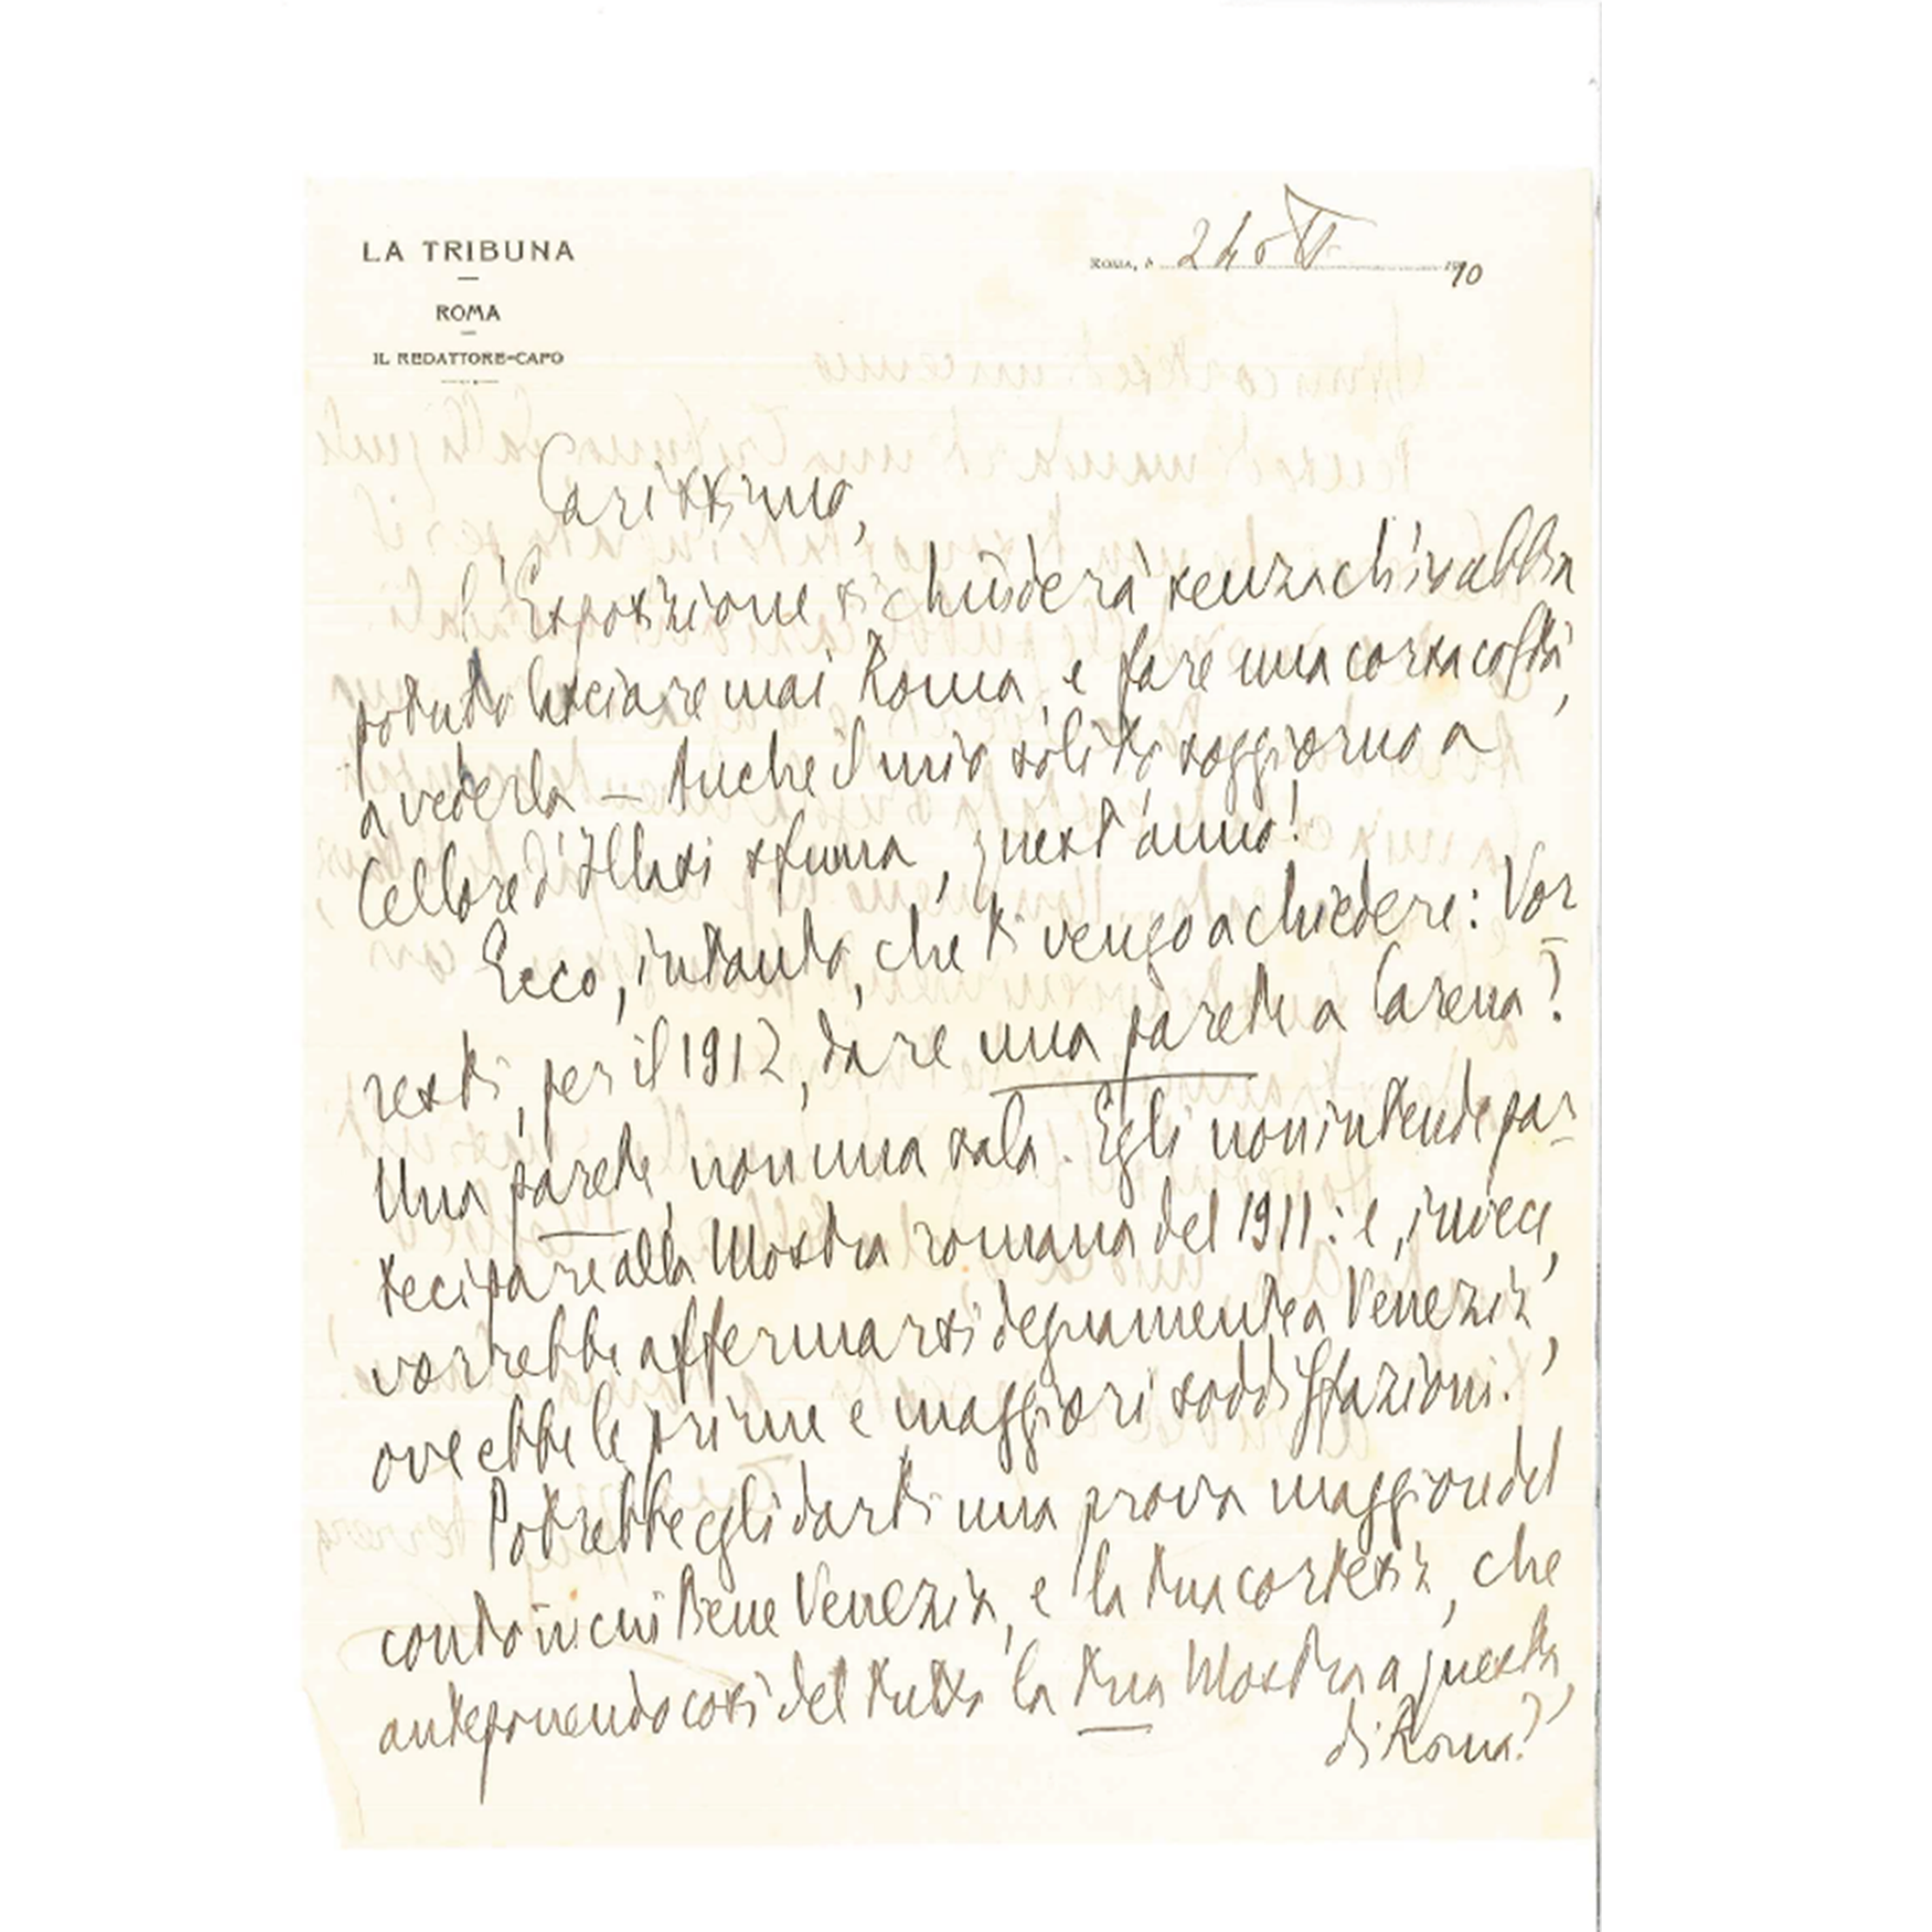 LA TRIBUNA
ROMA
IL REDATTORE-CAPO
Roma, li 24 ott 1910
Carissimo,
l'Esposizione si chiuderà senza ch'io abbia
potuto lasciare mai Roma, e fare una corsa costì,
a vederla — Anche il mio solito soggiorno a
Cellore d'Illasi sfuma, quest'anno!
Ecco, intanto, che ti vengo a chiedere: Vor
resti, per il 1912, dare una parete a Carena?
Una parete, non una sala. Egli non intende par
tecipare alla Mostra romana del 1911: e, invece,
vorrebbe affermarsi degnamente a Venezia,
ove ebbe le prime e maggiori soddisfazioni.
Potrebbe egli darti una prova maggiore del
conto in cui tiene Venezia, e la tua cortesia, che
anteponendo così del tutto la tua Mostra a questa
di Roma?